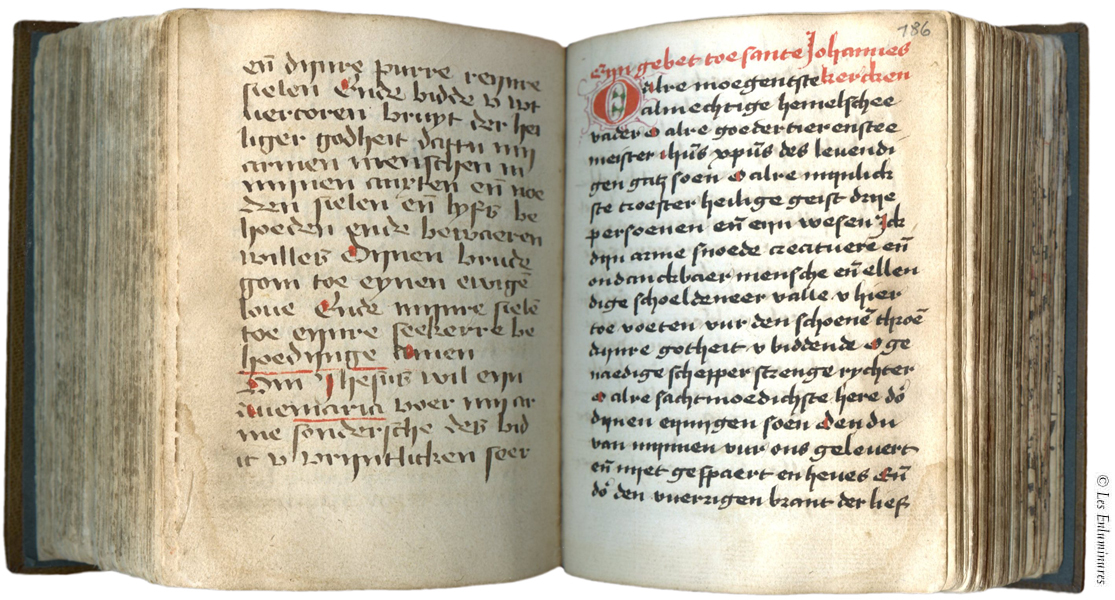 en̄ dijnre purre reijnre
sielen Ende bidde v wt
liercoren bruyt der hei
liger godheit dattu mij
armen menschen in
mijnen aarten en̄ noe
den sielen en̄ lyfs be
hoeden ende bewaeren
willes Dijnen brude
gom toe eynen ewigē
loue Ende mijnre sielē
toe eijnre seekerre be
hoedijnge Amen
Om Ihesus wil eijn
auemaria voer mij ar
me sondersche des bid
ic v vrijntlicken seer
186
Eijn gebet toe sante Johannes
kercken
O alre moegentste
almechtige hemelschee
vader O alre goedertierenstee
meister ihūs xpūs des leuendi
gen gatz soen O alre mijnlick
ste troester heilige geist drije
persoenen en̄ eijn wesen Ick
dijn arme snoede creatuere en̄
ondanckbaer mensche en̄ ellen
dige schoeldeneer valle v hier
toe voeten vur den schoenē throē
dijnre gotheit v biddende O ge
naedige schepper strenge rychter
O alre sachtmoedichste here do
dijnen eijnijgen soen Den du
van mijnnen vur ons geleuert
en̄ niet gespaert en heues En̄
do den vuerrigen brant der lief
© Les Enluminures